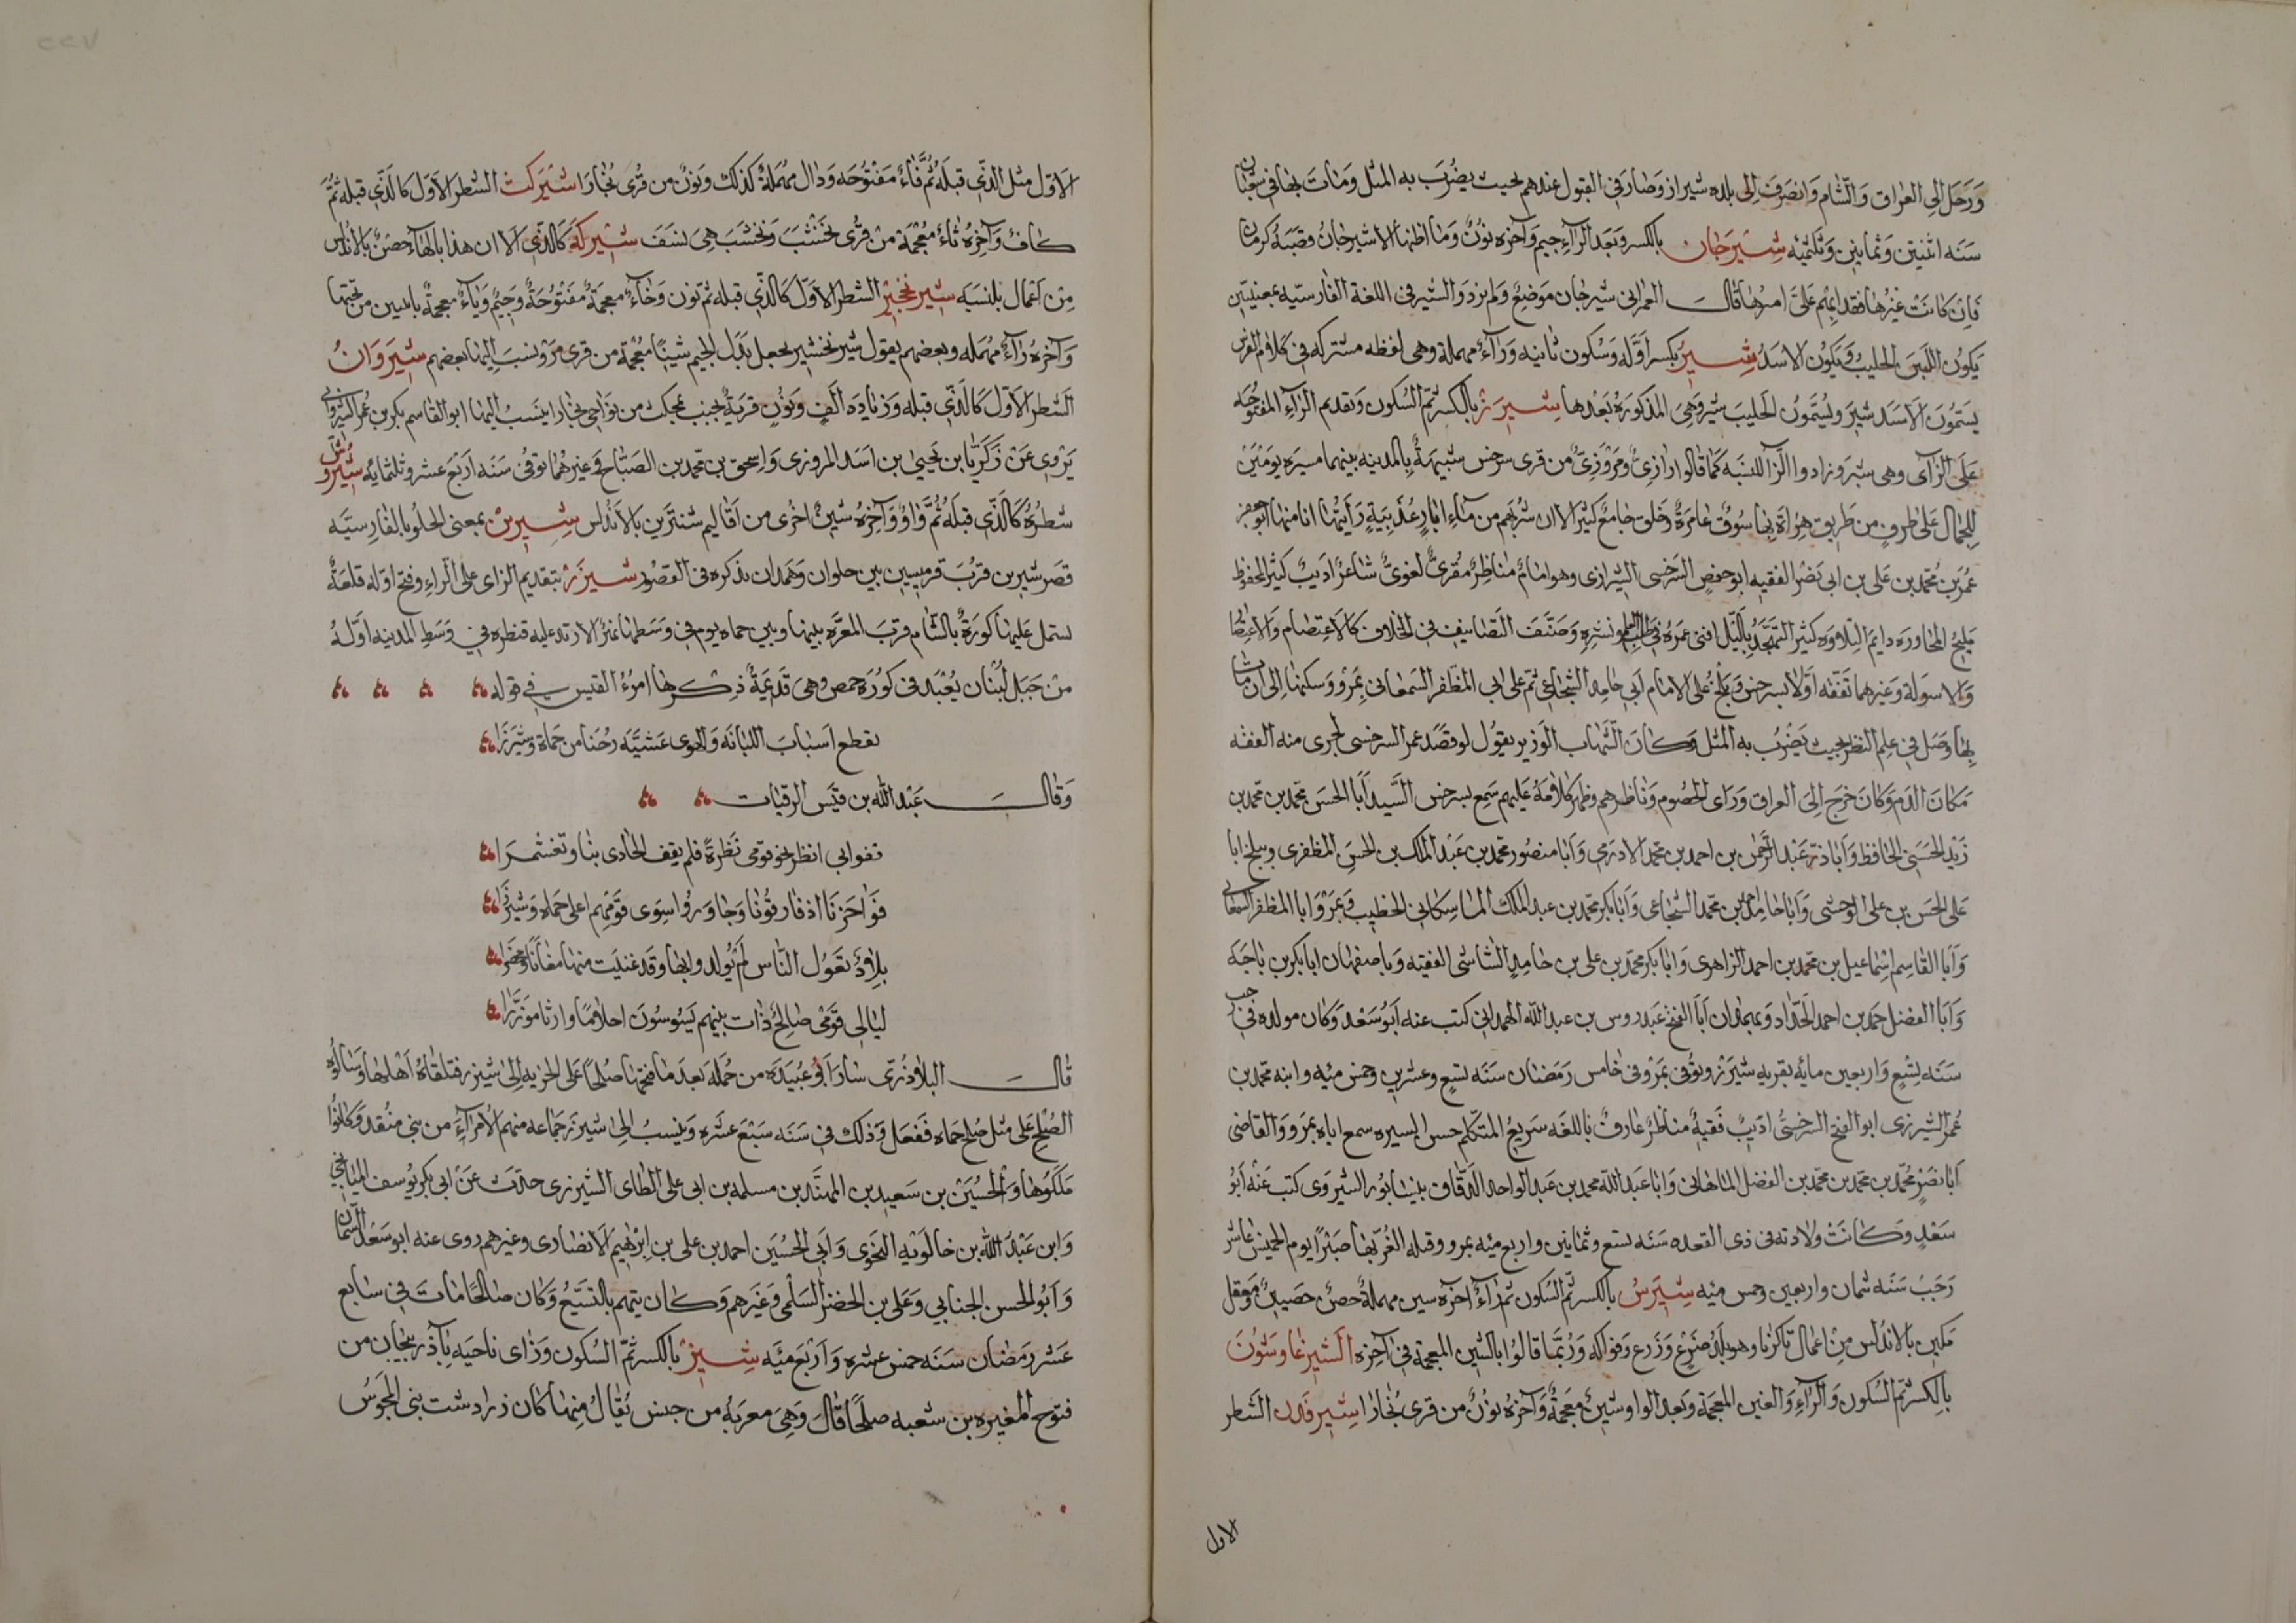 وَرَحَل الى العراق وَالشام وَانصرَفَ الى بلده شيراز وَصَار في القبول عندهم بحيث يضرَب به المثل وَمَاتَ بها في شعبان
سَنَه اثنتين وَثمانين وَثلثمئه شِيرَجَان بالكسر وَبعَد الرآء جيم وَآخره نونٌ وَما اظنها الا شيرجان قصَبَة كرمان
فان كانت غيرها فقد ابهم عَلىَّ امرها قال العمراني شيرجان موَضعٌ وَلم يزد وَالشير في اللغة الفارسيّه بمعنيين
يكون اللبَن الحليب وَيكون الاسَد شِيرُ بكسر اوّله وَسكون ثانيه وَرآءٌ مهملة وهى لفظه مشتركه في كلام الفرس
يسَمّونَ الاسَد شير ويُسَمّون الحَليبَ شير وَهى المذكورَة بَعْدها شِيرَز بالكسر ثمّ السّكون وَتقديم الرّآءِ المفتوحَه
عَلى الزاى وهى شير وزادوا الزّآ للنسبَه كما قالوا رازىٌّ ومَرْوَزِىٌّ من قرى سرخس شبيهةٌ بالمدينه بينهما مسيرَه يومَيْن
للجمال عَلى طرفٍ من طريق هرَاة بهَا سُوقٌ عامرَةٌ وَخلق وَجامعٌ كبيرٌ الا ان شربهم من مآءِ ابارٍ عُذَيبيّةٍ رَأيتها انا منها ابو حفص
عمَر بن محمد بن على بن ابى نصْر الفقيه ابو حفص السَّرَخسى الشيرازى وهو امامٌ مُناظِرٌ مُقرئٌ لغوىٌّ شاعرٌ اديبٌ كثير المحفوظ
مليح المحاورَه دايم التلاوَه كثير التهجّد بالليّل افنى عمرَهُ فى طلب العلم ونشرِه وَصَنّفَ التصَانيف فى الخلاف كالاعتِصام وَالاعتضاد
وَالاسولة وَغيرهما تفَقه اوّلاً بسرخس وَبلْخ على الامام ابى حامِد الشجاعى ثمّ على ابى المظفر السّمعانى بمَرو وَسكنها الى ان مات
بهَا وَصَل في علم النظر بحيث يَضْربُ به المثل وَكانَ الشّهاب الوَزير يقوُل لو فصَد عمر السرخسى لجرى منه الفقه
مَكانَ الدم وَكانَ خرَج الى العراق وَراى الخصُوم وَناظرهم وظهر كلاَمَهُ عَليهم سَمِع بسرخس السَّيد ابَا الحسن محمد بن محمد بن
زيد الحسَنى الحافظ وَابَا ذرّ عَبْد الرّحمن بن احمد بن محمد الادرمى وَابَا منصُور محمد بن عَبْد الملك بن الحسن المظفرى وببلخ ابا
على الحَسن بن على الوخشى وَابَا حَامِد احمد بن محمد الشجَاعى وَابَا بكر محمد بن عبد الملك الماسكانى الخطيب وَبمَرْو ابا المظفر السمعانى
وَابَا القاسِم اسْمَاعيل بن محمد بن احمد الزاهرى وَابَا بكر محمد بن على بن حامِد الشاشى الفقيه وَباصفهان ابا بكر بن ماجَه
وَابَا الفضل حمَد بن احمد الحدّاد وَبهمذان ابَا الفتح عَبدوس بن عبد الله الهمدانى كتب عنه ابُو سَعْد وَكان مولده فى رجب
سَنَه تسْع وَاربعين مايه بقريه شيَرَز وتوُفى بمَرْو فى خامس رَمَضان سَنَه تسع وعشرين وخمس مئه وابنه محمّد بن
عُمَر الشيرزى ابو الفتح السّرخسىُّ اديبٌ فَقيهٌ مناظِرٌ عارفٌ باللغه سَريعُ المتكلم حسن السيره سمع اباه بمَرو وَالقاضى
ابَا نصْرٍ محمّد بن محمد بن محمّد بن الفضل الماهانى وَابَا عَبْد الله محمد بن عَبد الواحد الدّقاق بنيسَابُور الشيروَى كتب عَنْه ابُو
سَعْدٍ وَكانتْ وَلادته فى ذى القعده سَنه تسع وثمانين واربع مئه بمرو وقتله الغُزّ بها صَبْرًا يوم الخميس عاشر
رَجَب سَنَه ثمان واربعين وخمس مئه شِيَرسُ بالكسر ثمّ السّكون ثمّ رآءٌ آخره سين مهملةٌ حصنٌ حَصينٌ وَمعقل
مكين بالاندلس مِن اعمال تاكرنا وهو بلَدُ ضرْع وَزَرع وَفواكه وَرُبمَّا قالوُا بالشين المعجمة فى آخِره الشّيرغاوشون
بالكسر ثمّ السُّكون وَالرآءِ وَالغين المعجمَة وَبعد الواو شينٌ معجمَةٌ وَآخره نونٌ من قرى بُخارَا شيرفَدن الشّطر
الاول
الاوّل مثل الذّي قبله ثُمّ فآءٌ مفتوُحَه وَدَال مُهملةٌ كذلك وَنونٌ من قرُى بُخارَا شيَركث الشطر الاوّل كالذّي قبله ثمُّ
كافٌ وَآخِره ثآءٌ مُعْجمَة من قرُى نخشبَ وَنخشبَ هِىَ نسَف شيركَه كالذّي الا ان هذا بالهآء حصْنٌ بالاندلس
مِن اعْمال بلنسَيَه شيرنخجيْر الشطر الاوّل كالذّى قبله ثم نون وَخَآءٌ معجمَةٌ مفتوُحَةٌ وَجيْمٌ وَيآءٌ معجمةٌ باثنين من تحتها
وَآخرَهُ رَآءٌ مُهمَله وبعضهم يقول شيرنخشير يجعل بَدَل الجيم شينًا مُعْجمَة من قرى مَرْو نسَبَ اليها بعضهم شيَروَانُ
الشطر الاوّل كالذّي قبله وَزيَادَه الفٍ وَنوُنٍ قريَةٌ بجنب بمجكث من نوَاحى بخارا ينسَبُ اليها ابو القاسم بكر بن عُمَر الشيروانى
يَرْوى عَنْ زكَريَّا بن يَحيىَ بن اسَد المروزى وَاسحق بن محمد بن الصّباح وَغيرهُما توُفى سَنه ارَبَع عشر وثلثمايَه شَيروش
شطرُه كالذّي قبله ثُمّ وَاوٌ وَآخِرهُ شينٌ اخْرى من اقاليم شنترَين بالاندلس شِيِرينْ بمعنى الحلُو بالفارسيَّه
قصَر شيرين قربَ قرميسِين بين حلوان وَهمدان نذكره فى القصُور شَيزَرْ بتقديم الزاى على الرّاءِ وفتح اوّله قلعَةٌ
تشتمل عَليها كورَةٌ بالشام قربَ المعرّه بينها وبين حماه يوم فى وَسَطها نهرُ الارند عليه قنطره فى وَسَط المدينه اوّلهُ
من جَبل لُبْنان يُعْبَد فى كورَة حمص وهى قدَيمَةٌ ذكرها امرُءُ القيس في قوله
تقطع اسَبابَ اللبانَه وَالهوى عَشيّه رحْنا من حَماة وَشيزَرَا
وَقال عَبْد الله بن قيَس الرقيات
قفوابى انظر نحو قومى نَظرَةً فلم يقف الحَادى بنا وتغشمرَا
فوَاحَزنَا اذ فارقونَا وَجاوَرُوا سِوَى قوَمهم اعلى حَماه وَشيزَرَا
بلاَدٌ تقوُل الناس لمَ يُولدوا بها وَقد غنيَت منها مغَانًا ومحضَرا
ليَالى قوَمى صَالحٌ ذات بينهم يَسُوسُونَ احلامًا وارثا موَزّرَا
قال البلاذُرّى سَارَ ابَوُ عُبَيدَه من حُمَله بَعدَ ما فتحَها صلحًا عَلى الجزيه الى شيزر فتلقاهُ اهْلها وسَالوُه
الصُّلح عَلى مثل صُلح حماه ففَعَل وَذلك فى سَنَه سَبْعَ عشَره وَينسبُ الى شيزَر جماعه منهم الامرآءَ من بنى منُقد وَكانوُا
ملكُوها وَالحُسيَن بن سَعيد بن المهنَّد بن مسلمه بن ابى على الطاى الشيزرى حدّث عَنْ ابى بكر يُوسف الميانجى
وَابن عَبْد الله بن خالوَيه النحَوى وَابى الحُسَين احمد بن على بن ابْرهيَم الانصَارى وغيرهم روى عنه ابو سَعْد السّمان
وَابُو الحسن الجنابي وَعَلى بن الخضر السّلمى وَغيَرهم وَكان يتهم بالتشيّع وَكان صَالحًا مَاتَ فى سَابع
عَشر رمَضان سَنَه خمس عشره وَارْبَع مئَه شِيزْ بالكسر ثمّ السكون وَزاى ناحيَه بآذربيَجان من
فتوح المغيره بن شعبه صلحًا قال وَهىَ معربهُ من جيس يُقال منها كان زرادشت بنى المجوُس